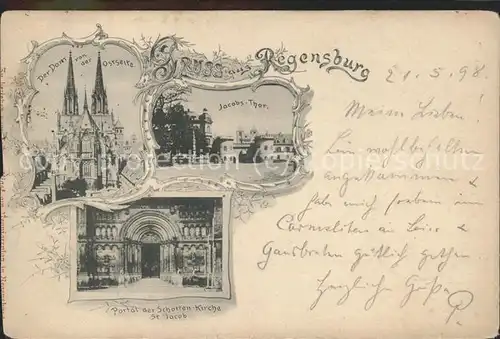 Gruss aus Regensburg
Der Dom von der Ostseite.
Jacobs-Thor.
Portal der Schotten-Kirche
St Jacob
21.5.98.
Meine Lieben!
Bin wohlbehalten
angekommen &
habe mich soeben im
Carmeliten an Bier &
Gansbraten gütlich gethan.
Herzliche Grüße